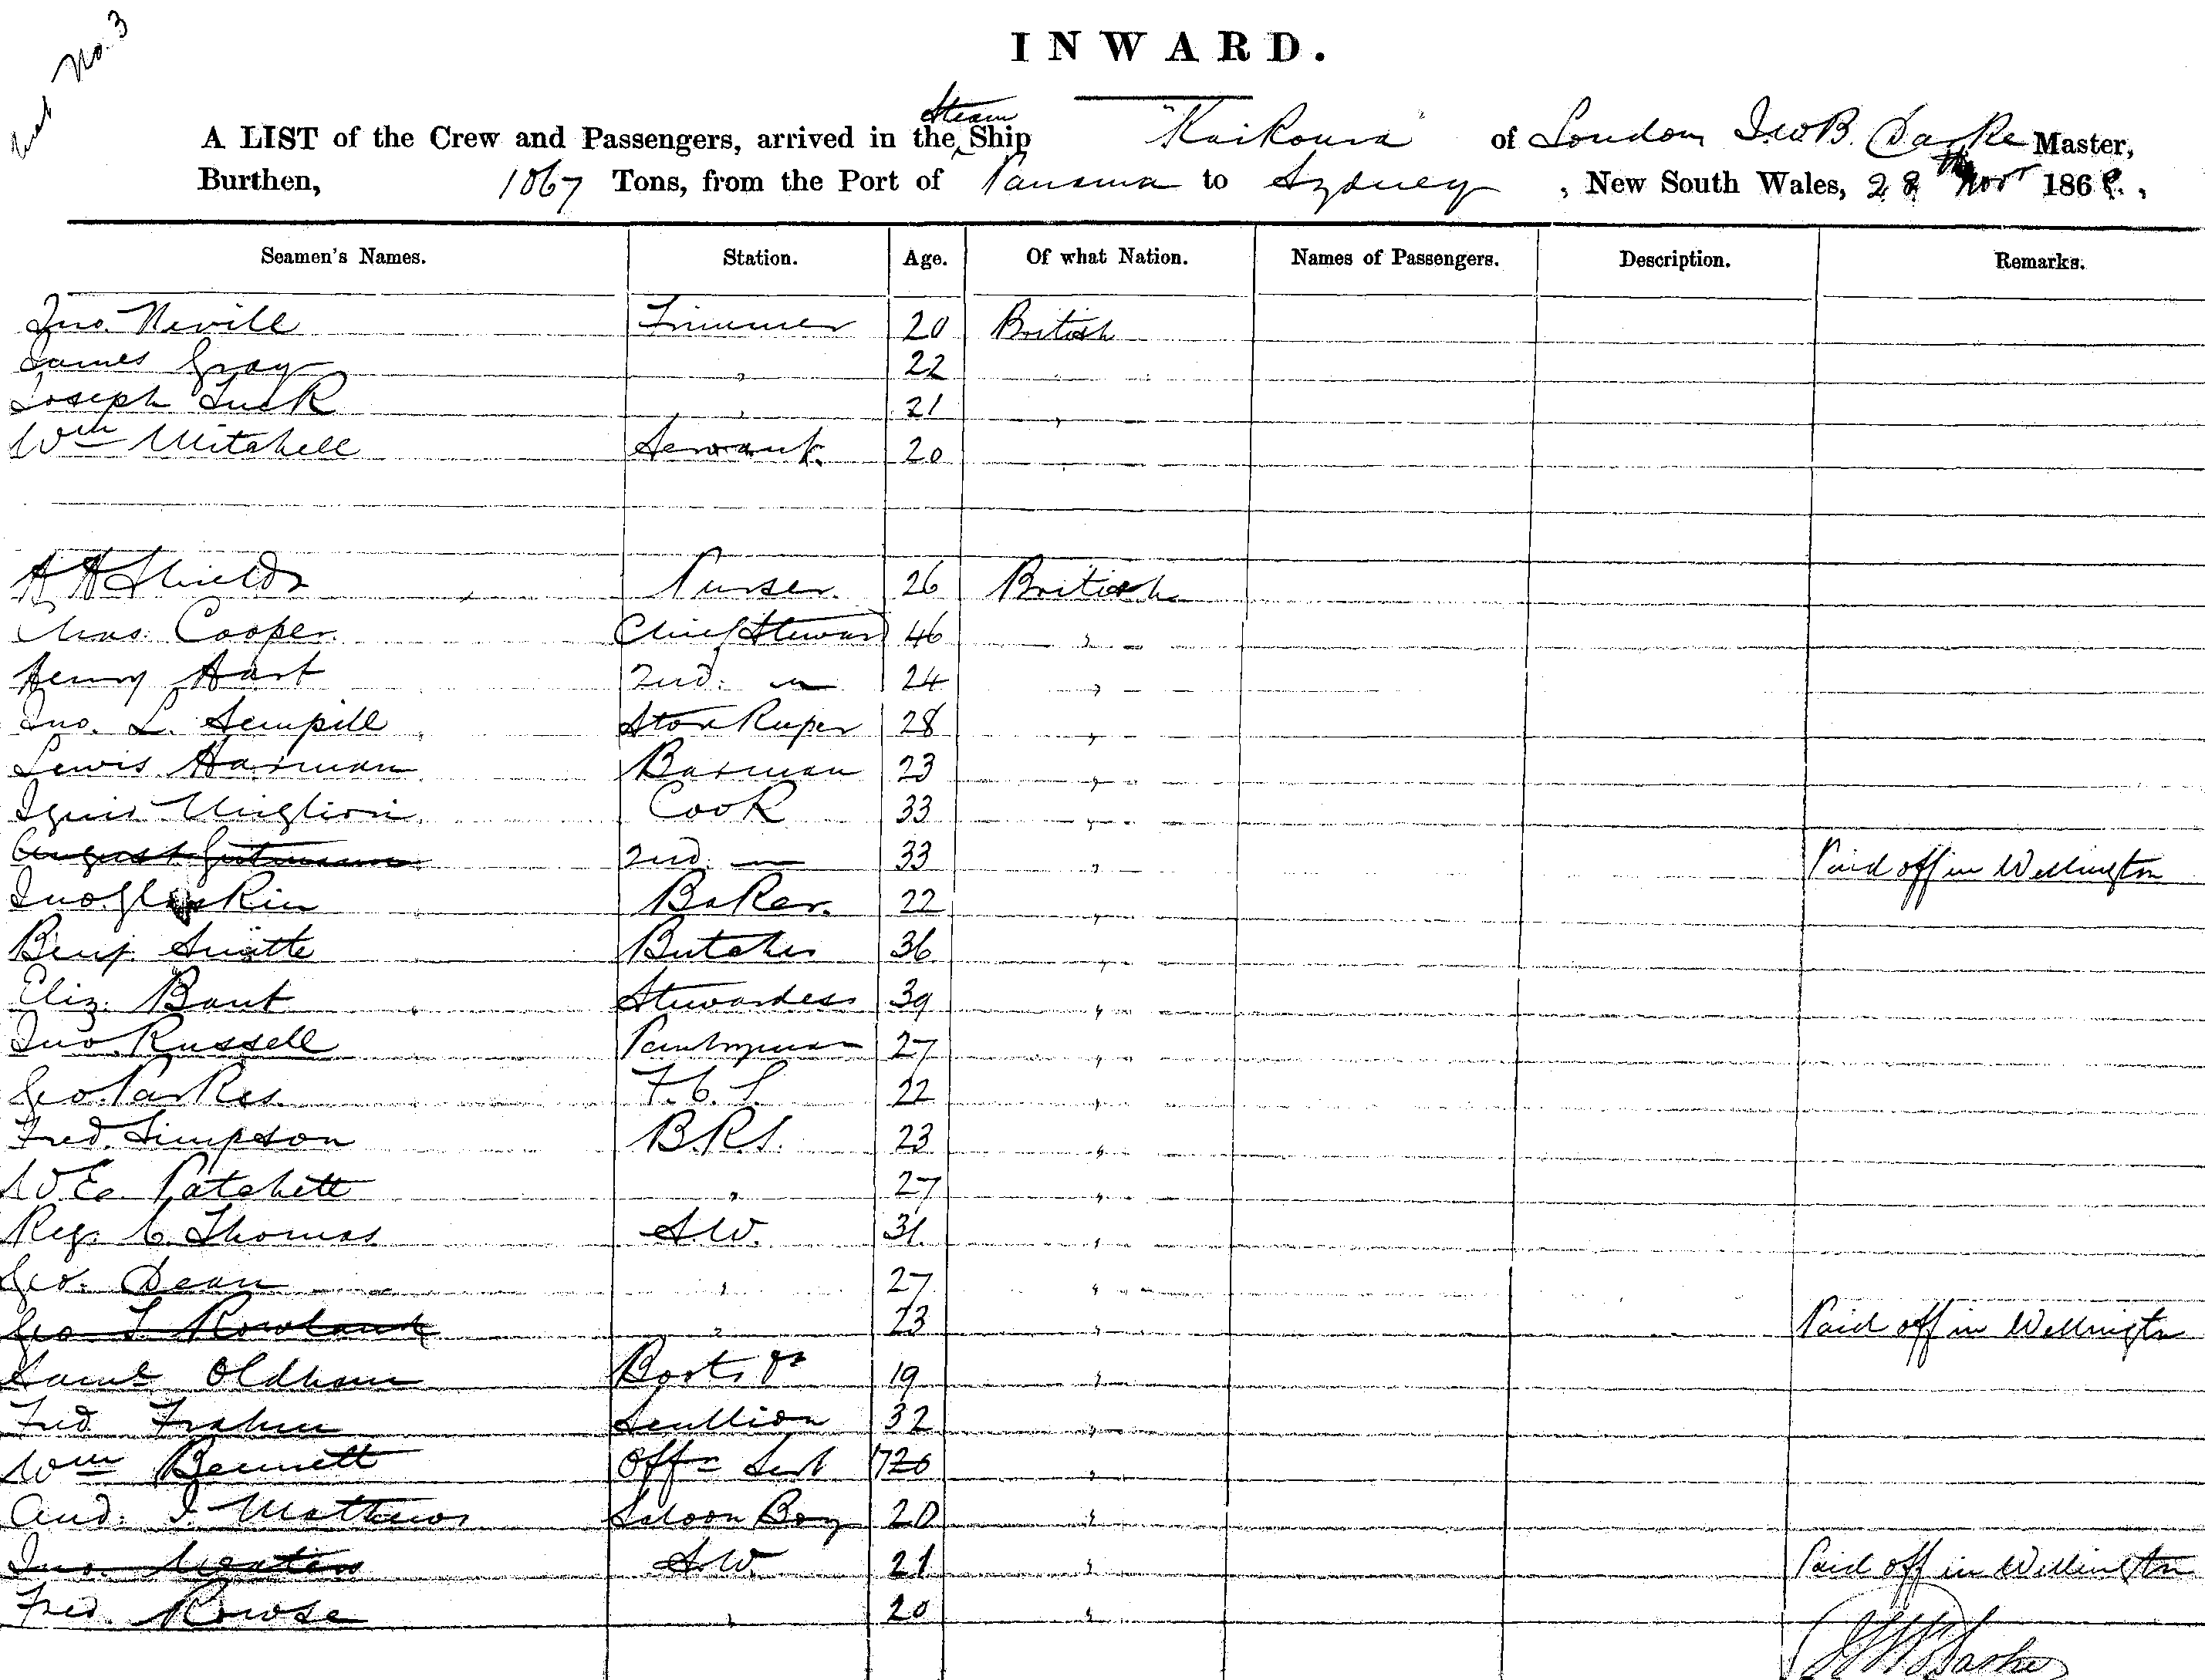 List No. 3
INWARD.
Steam
A LIST of the Crew and Passengers, arrived in the Ship "Kaikoura" of London J.W.B. Darke Master,
Burthen, 1067 Tons, from the Port of Panama to Sydney, New South Wales, 28th Novr 1868.,
Seamen's Names. Station. Age. Of what Nation. Names of Passengers. Description. Remarks.
Jno. Nevill Trimmer 20 British
James Gray " 22 "
Joseph Tuck " 21 "
Wm Mitchell Servant. 20 "
A H Shields Purser. 26 British
Chas. Cooper. Chief Steward 46 "
Henry Hart 2nd. " 24 "
Jno. L. Sempill Storekeeper 28 "
Lewis Harman Barman 23 "
Cook 33 "
August 2nd. " 33 " Paid off in Wellington
Jno. Baker. 22 "
Benj. Butcher 36 "
Eliz. Bant Stewardess 39 "
Jno. Russell Pantryman 27 "
Geo. Parkes. F.C.S. 22 "
Fred. Simpson B.R.S. 23 "
W.E. Patchett " 27 "
Reg. C. Thomas S.W. 31. "
Geo. Dean " 27 "
Geo T Rowland " 23 " Paid off in Wellington
Saml Oldham Boots &c 19 "
Fred. Scullion 32 "
Wm Bennett Offrs Servt "
And. J. Mathews Saloon Boy 20 "
Jno. S.W. 21 " Paid off in Wellington
Fred. Rowse " 20 "